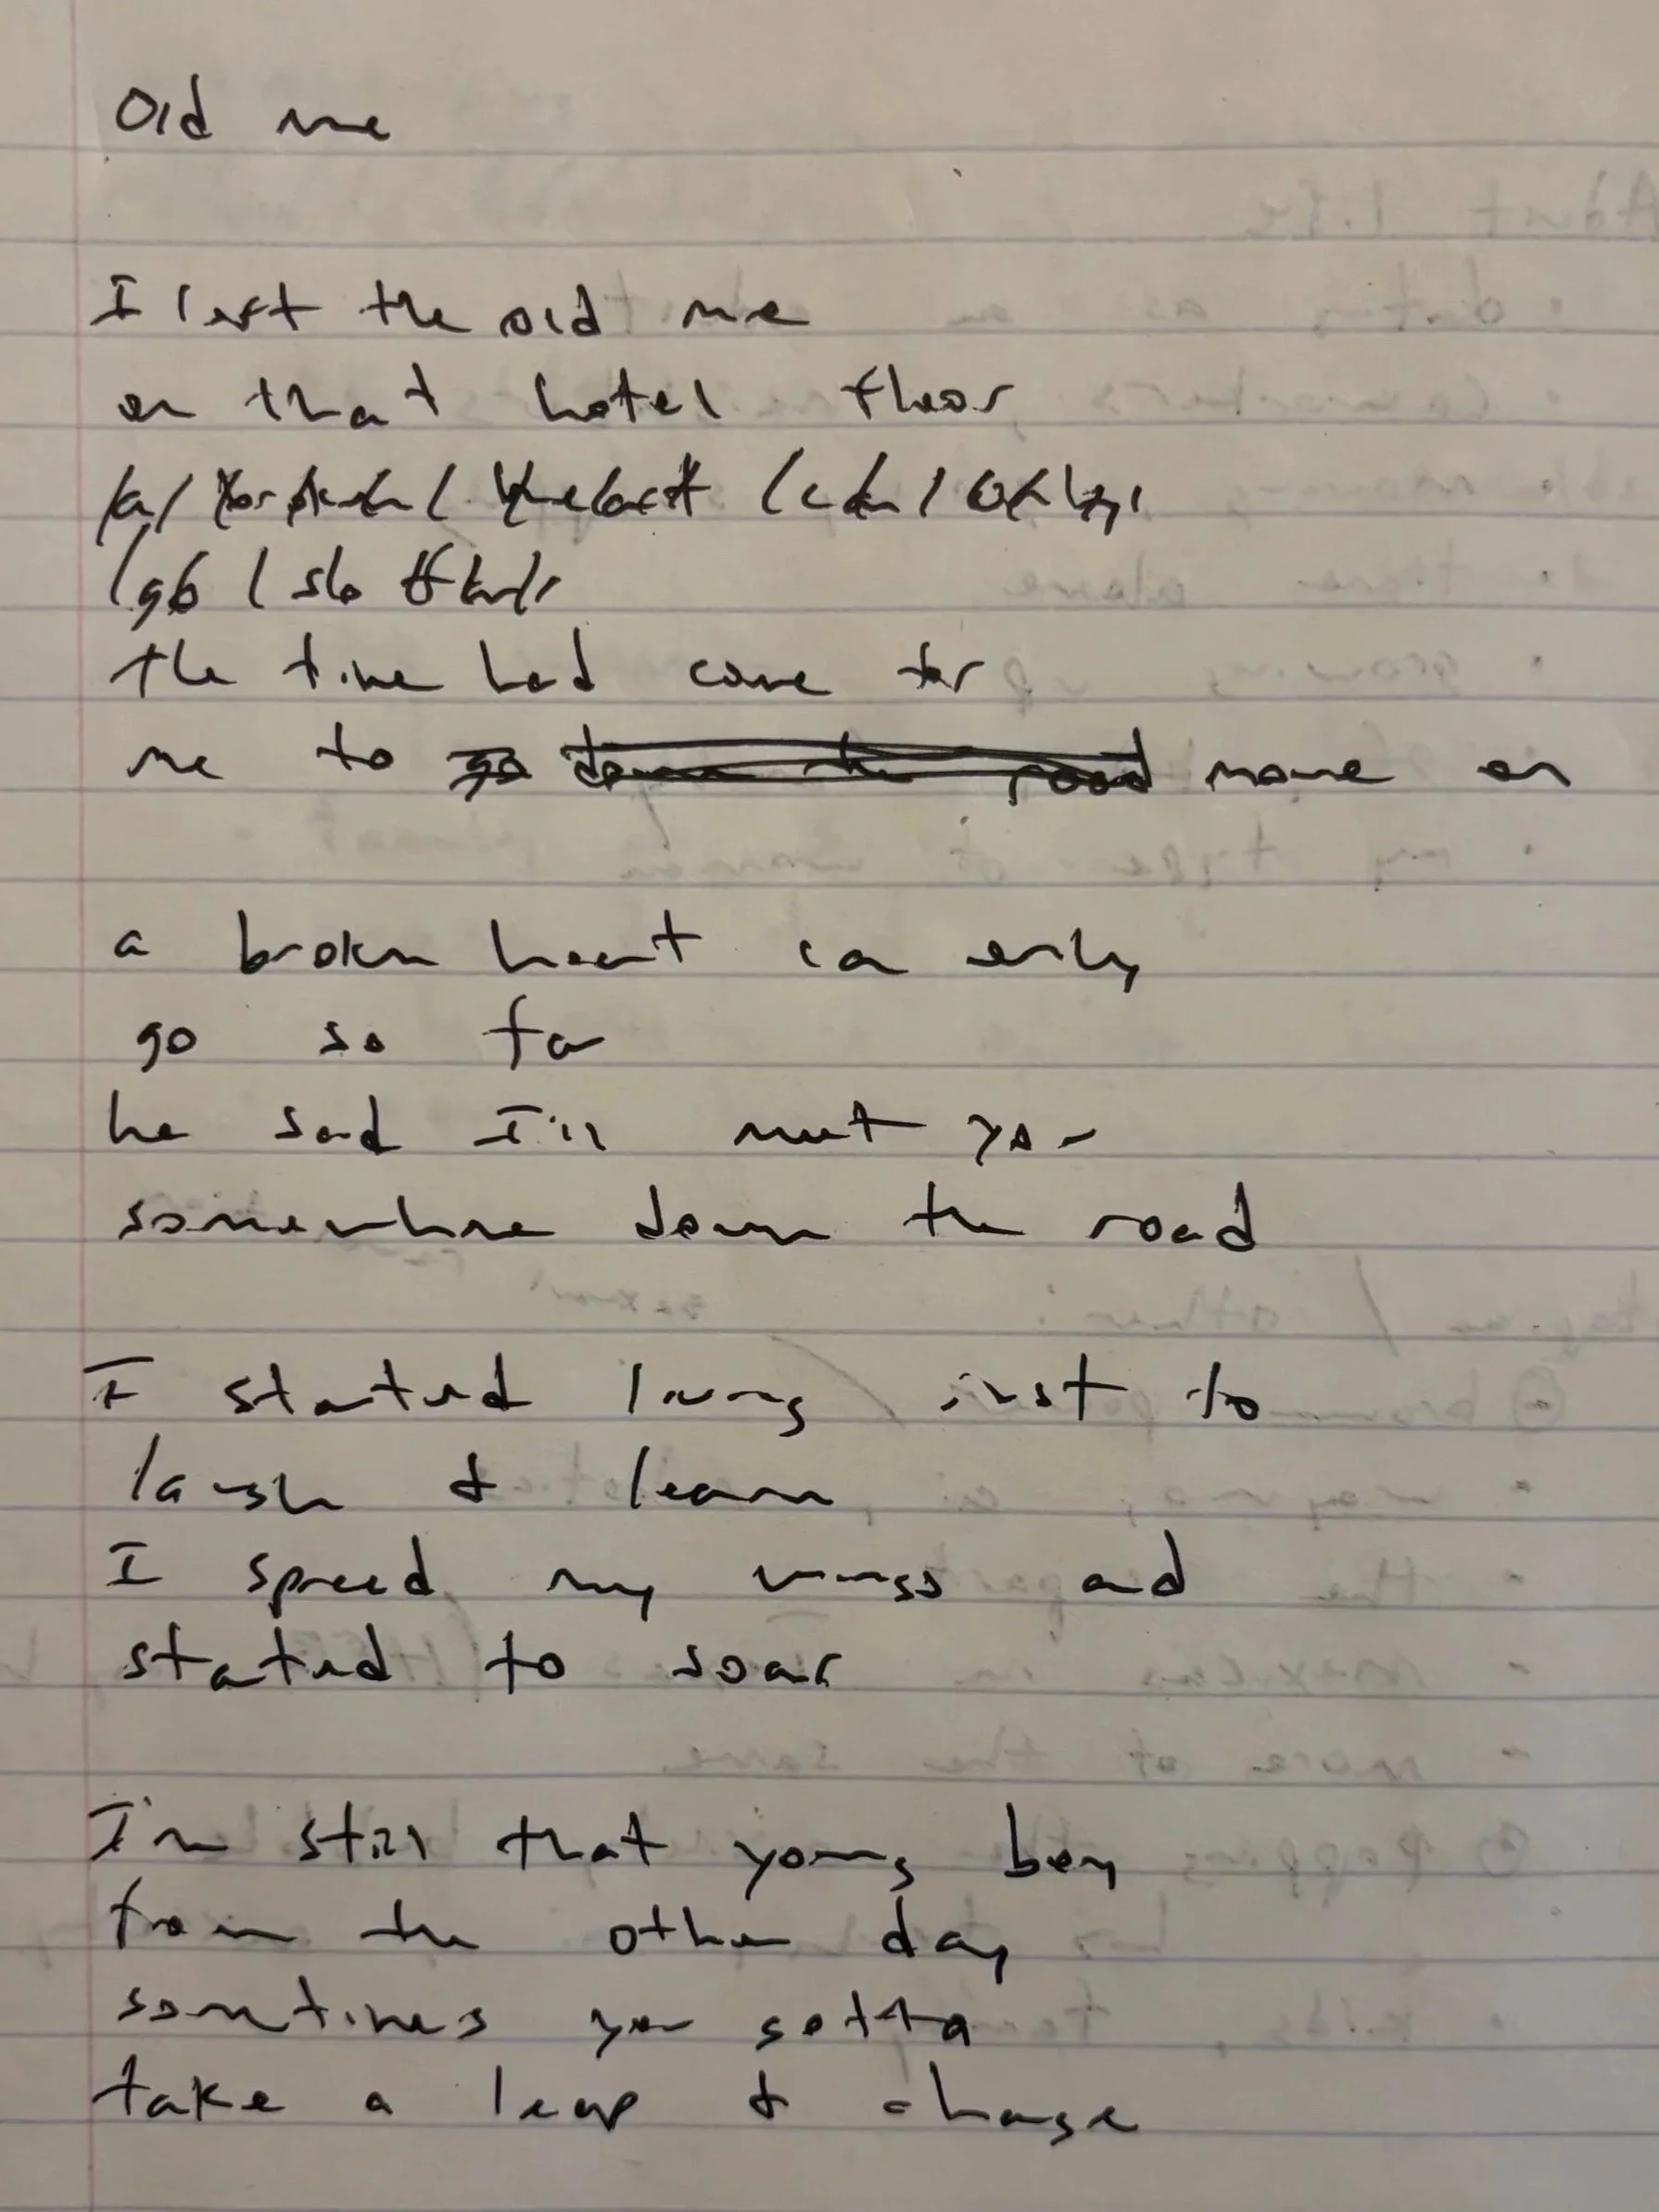 Old me
I left the old me
on that hotel floor
a broken heart can only
go so far
the time had come for
me to go down the road move on
a broken heart can only
go so far
he said I'll meet you
somewhere down the road
I started living just to
laugh & learn
I spread my wings and
started to soar
I'm still that young boy
from the other day
sometimes you gotta
take a leap & change